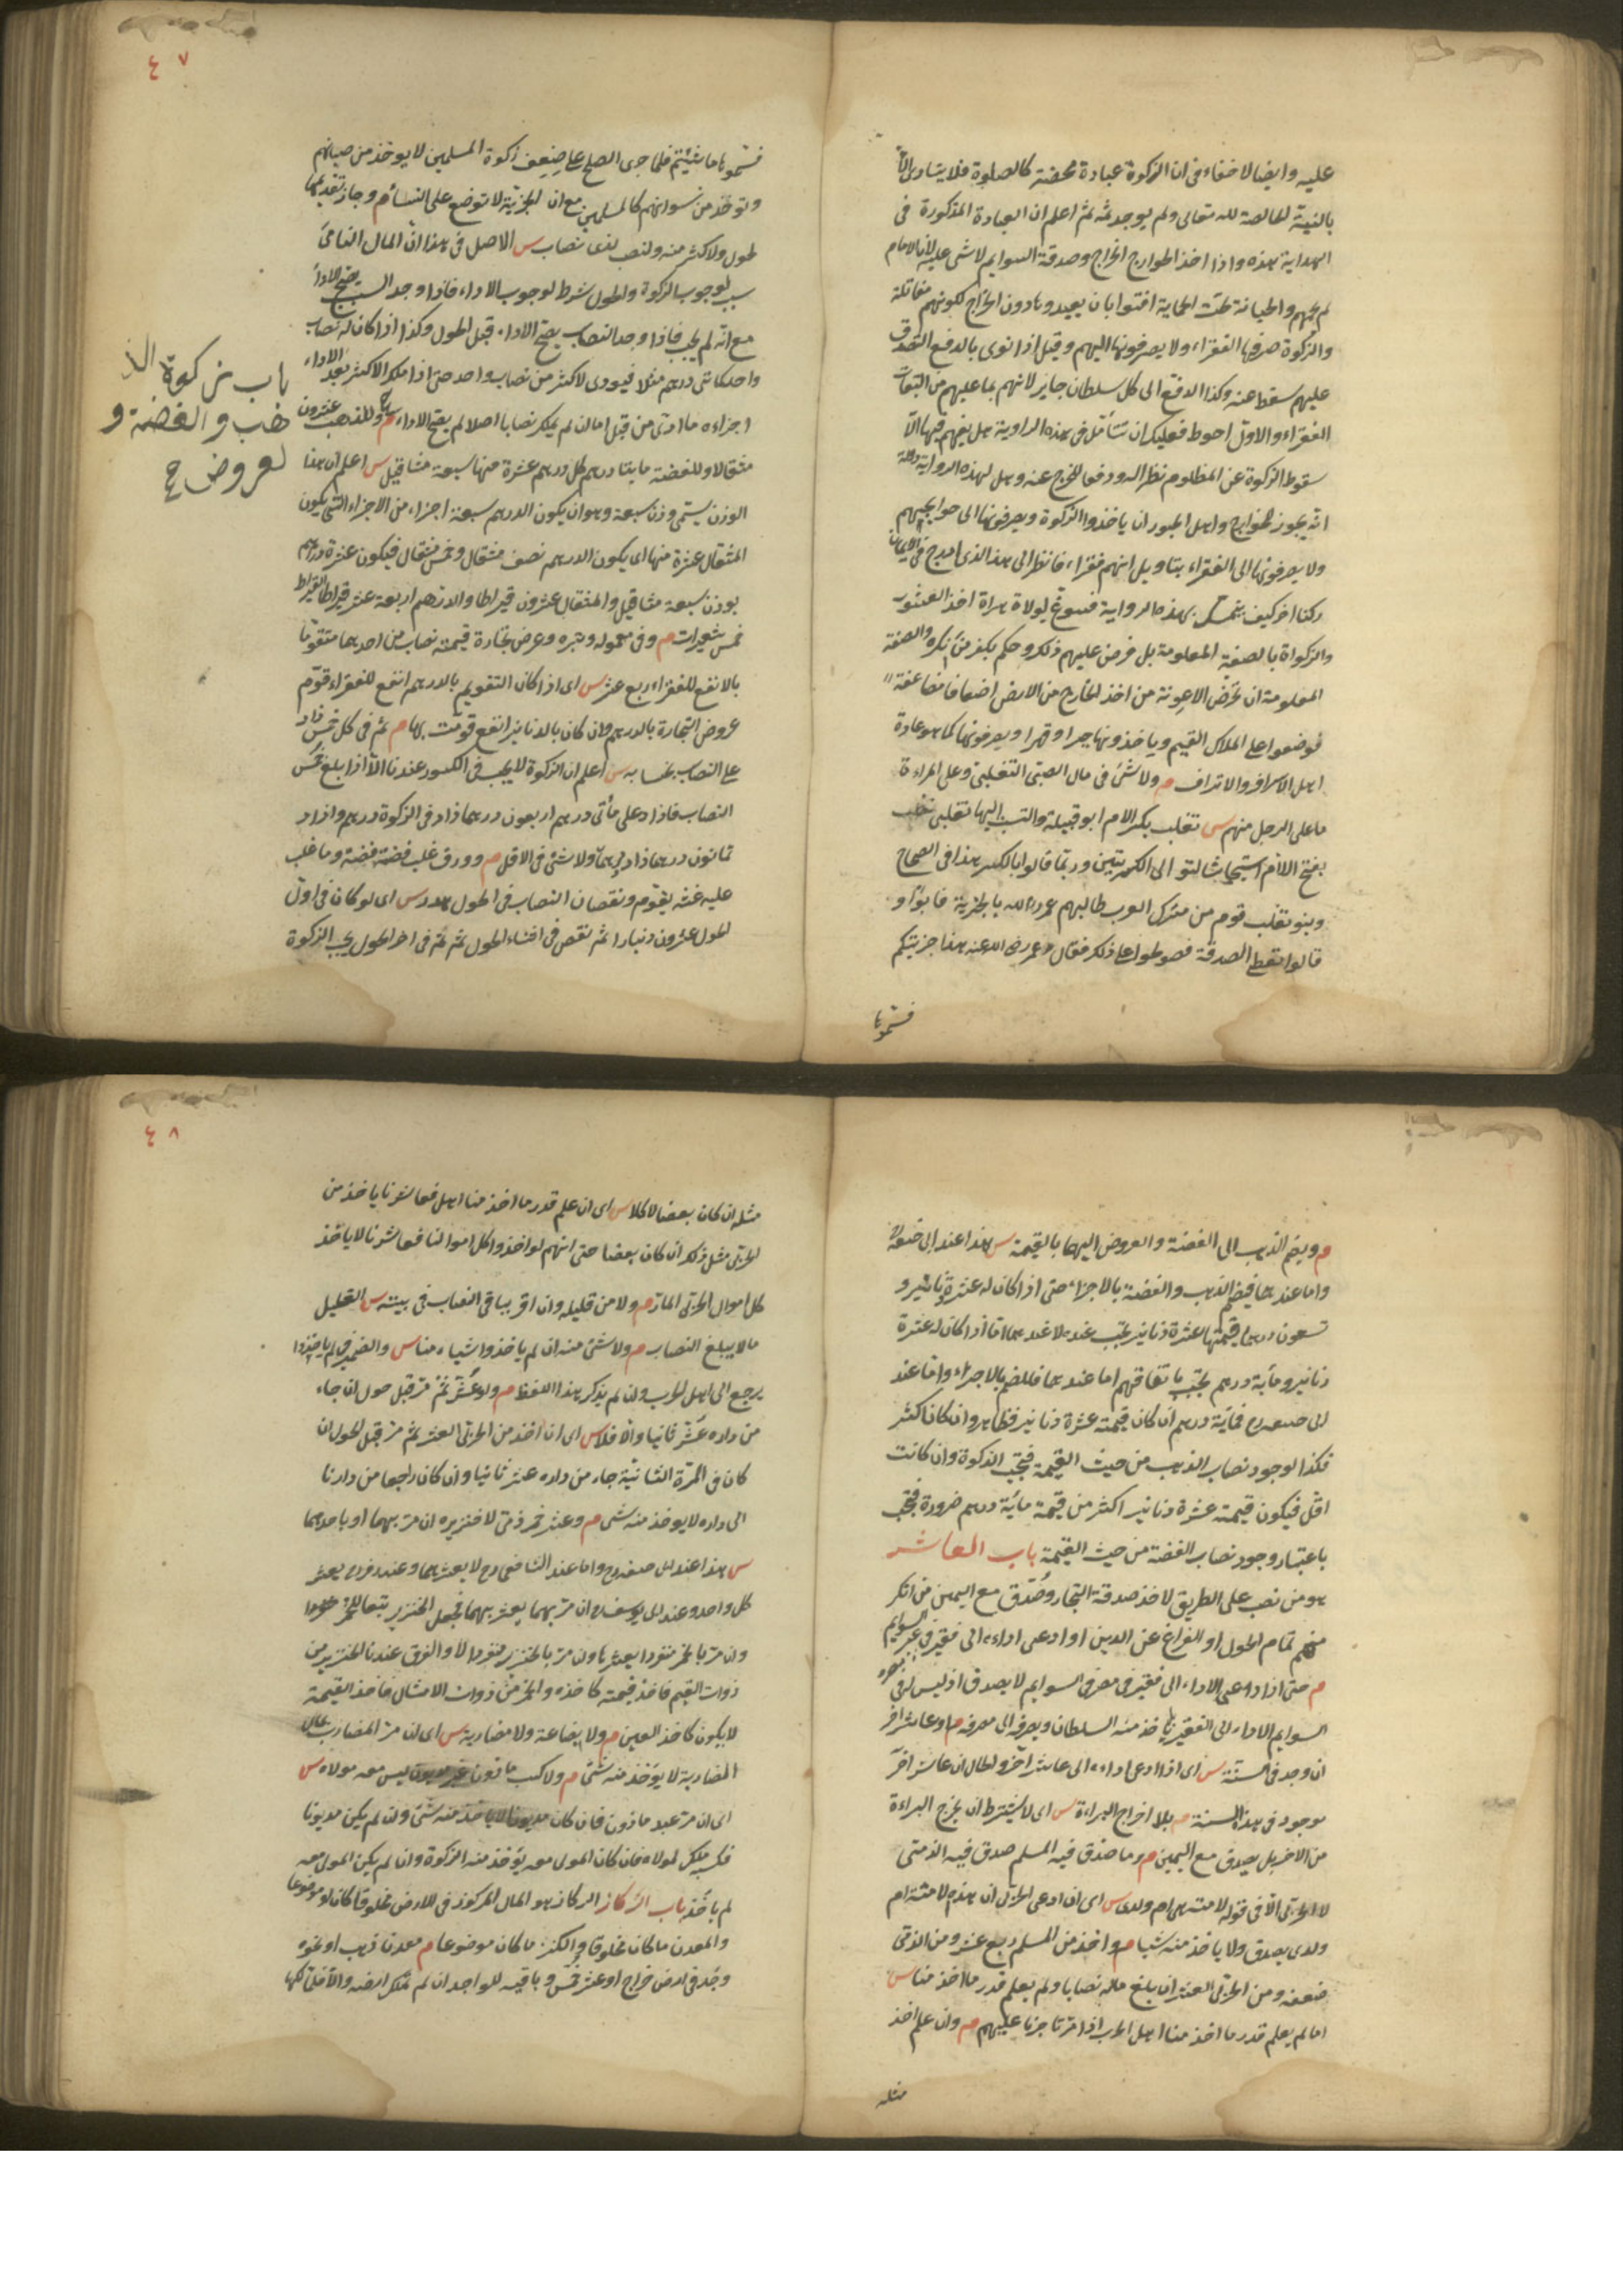 عليه وايضا لا خفاء في ان الزكوة عبادة محضة كالصلوة فلا يتادى الا
بالنية الخالصة لله تعالى ولم يوجد ثمه ثم اعلم ان العبادة المذكورة في
الهداية هذه واذا اخذ الخوارج الخراج وصدقة السوايم لا شئ عليه لان الامام
لم يحمهم والجباية تحت الحماية افتوا بان يعيدوها دون الخراج لكونهم مقاتلة
والزكوة مصرفها الفقراء ولا يصرفونها اليهم وقيل اذا نوى بالدفع التصدق
عليهم سقط عنه وكذا الدفع الى كل سلطان جاير لانهم بما عليهم من التبعات
الفقراء والاول احوط فعليك ان تتأمل في هذه الرواية هل يفهم فيها الا
سقوط الزكوة عن المظلوم نظرا له ودفعا للحرج عنه وهل لهذه الرواية دلالة
انه يجوز للخوارج واهل الجور ان ياخذوا الزكوة ويصرفونها الى حوايجهم
ولا يصرفونها الى الفقراء بتاويل انهم فقراء فانظر الى هذا الذى ادرج في الايمان
ركنا اخر كيف يتمسك بهذه الرواية فسوغ لولاة هراة اخذ العشور
والزكواة بالصفة المعلومة بل فرض عليهم ذلك وحكم بكفر من انكره والصفة
المعلومة ان تحرض الاعونة من اخذ الخارج من الارض اضعافا مضاعفة
فوضعوا على الملاك القيم وياخذونها جبرا وقهرا ويصرفونها كما هو عادة
اهل الاسراف والاتراف م ولا شئ في مال الصبى التغلبى وعلى المراءة
ما على الرجل منهم س تغلب بكسر اللام ابو قبيلة والنسب اليها تغلبى
بفتح اللام استيحاشا لتوالى الكسرتين وربما قالوا بالكسر هذا في الصحاح
وبنو تغلب قوم من مشركى العرب طالبهم عمر رض الله بالجزية فابوا و
قالوا نعطى الصدقة فصولحوا على ذلك فقال عمر رض الله عنه هذا جزيتكم
فسموها
٤٧
فسموها ما شئتم فلما جرى الصلح على ضعف زكوة المسلمين لا يوخذ من صبيانهم
وتوخذ من نسوانهم كالمسلمين مع ان الجزية لا توضع على النساء م وجاز تقديمها
لحول ولاكثر منه ولنصب لذى نصاب س الاصل في هذا ان المال النامى
سبب لوجوب الزكوة والحول شرط لوجوب الاداء فاذا وجد السبب يصح الاداء
مع انه لم يجب فاذا وجد النصاب يصح الاداء قبل الحول وكذا اذا كان له نصاب
واحد كمائتى درهم مثلا فيودى لاكثر من نصاب واحد حتى اذا ملك الاكثر بعد الاداء
اجزاءه ما ادى من قبل اما ان لم يملك نصابا اصلا لم يصح الاداء م وللذهب عشرون
مثقالا وللفضة مايتا درهم كل درهم عشرة منها سبعة مثاقيل س اعلم ان هذا
الوزن يسمى وزن سبعة وهو ان يكون الدرهم سبعة اجزاء من الاجزاء التى يكون
المثقال عشرة منها اى يكون الدرهم نصف مثقال وخمس مثقال فيكون عشرة دراهم
بوزن سبعة مثاقيل والمثقال عشرون قيراطا والدرهم اربعة عشر قيراطا والقيراط
خمس شعيرات م وفى معموله وتبره وعرض تجارة قيمته نصاب من احدهما متقوما
بالانفع للفقراء ربع عشر س اى اذا كان التقويم بالدرهم انفع للفقراء قوم
عروض التجارة بالدرهم وان كان بالدنانير انفع قومت بها م ثم في كل خمس زاد
على النصاب بحسابه س اعلم ان الزكوة لا يجب في الكسور عندنا الا اذا بلغ خمس
النصاب فاذا زاد على مأتى درهم اربعون درهما زاد في الزكوة درهم واذا زاد
ثمانون درهما زاد درهمان ولا شئ في الاقل م وورق غلب فضته فضة وما غلب
عليه غشه يقوم ونقصان النصاب في الحول هدر س اى لو كان في اول
الحول عشرون دينارا ثم نقص في اثناء الحول ثم تم في اخر الحول يجب الزكوة
باب زكوة الذ
هب والفضة و
لعروض ح
م ويضم الذهب الى الفضة والعروض اليهما بالقيمة س هذا عند ابى حنيفة
واما عندهما فيضم الذهب والفضة بالاجزاء حتى اذا كان له عشرة دنانير و
تسعون درهما قيمتها عشرة دنانير يجب عنده لا عندهما اما اذا كان له عشرة
دنانير ومأية درهم يجب باتفاقهم اما عندهما فللضم بالاجزاء واما عند
ابى حنيفه رح فمأية درهم ان كان قيمته عشرة دنانير فظاهر وان كان اكثر
فكذا لوجود نصاب الذهب من حيث القيمة فتجب الزكوة وان كانت
اقل فيكون قيمة عشرة دنانير اكثر من قيمة ماية درهم ضرورة فيجب
باعتبار وجود نصاب الفضة من حيث القيمة باب العاشر
هو من نصب على الطريق لاخذ صدقة التجار وصدق مع اليمين من انكر
منهم تمام الحول او الفراغ عن الدين او ادعى اداءه الى فقير في غير السوايم
م حتى اذا ادعى الاداء الى فقير في مصر في السوايم لا يصدق اذ ليس له في
السوايم الاداء الى الفقير بل ياخذ منه السلطان ويصرفه الى مصرفه م او عاشر اخر
ان وجد في السنة س اى اذا ادعى اداءه الى عاشر آخر والحال ان عاشرا اخر
موجود في هذه السنة م بلا اخراج البراءة س اى لا يشترط ان يخرج البراءة
من الاخر بل يصدق مع اليمين م وما صدق فيه المسلم صدق فيه الذمى
لا الحربى الا في قوله لامته هى ام ولدى س اى ان ادعى الحربى ان هذه الامة ام
ولدى يصدق ولا ياخذ منه شيا م واخذ من المسلم ربع عشر ومن الذمى
ضعفه ومن الحربى العشر ان بلغ ماله نصابا ولم يعلم قدر ما اخذ منا س
اما لم يعلم قدر ما اخذ منا اهل الحرب اذا مر تاجرنا عليهم م وان علم اخذ
مثله
٤٨
مثله ان كان بعضا لا كلا س اى ان علم قدر ما اخذ منا اهل فعاشرنا ياخذ من
الحربى مثل ذلك ان كان بعضا حتى انهم لو اخذوا كل اموالنا فعاشرنا لا ياخذ
كل اموال الحربى المار م ولا من قليله وان اقر بباقى النصاب في بيته س القليل
ما لا يبلغ النصاب م ولا شئ منه ان لم ياخذوا شياء منا س والضمير في لم ياخذوا
يرجع الى اهل الحرب وان لم يذكر هذا اللفظ م ولو عشر ثم مر قبل حول ان جاء
من داره عشر ثانيا والا فلا س اى ان اخذ من الحربى العشر ثم مر قبل الحول ان
كان في المرة الثانية جاء من داره عشر ثانيا وان كان راجعا من دارنا
الى داره لا يوخذ منه شئ م وعشر خمر ذمى لا خنزيره ان مر بهما او باحدهما
س هذا عند ابى حنيفه رح واما عند الشافعى رح لا يعشرهما وعند زفر يعشر
كل واحد وعند ابى يوسف ان مر بهما يعشر بهما فجعل الخنزير تبعا للخمر
وان مر بالخمر منفردا يعشرها وان مر بالخنزير منفردا لا والفرق عندنا الخنزير من
ذوات القيم فاخذ قيمته كاخذه والخمر من ذوات الامثال فاخذ القيمة
لا يكون كاخذ العين م ولا بضاعة ولا مضاربة س اى ان مر المضارب بمال
المضاربة لا يوخذ منه شئ م ولا كسب ماذون غير مديون ليس معه مولاه س
اى ان مر عبد ماذون فان كان مديونا لا ياخذ منه شئ وان لم يكن مديونا
فكسبه ملك لمولاه فان كان المولى معه يوخذ منه الزكوة وان لم يكن المولى معه
لم ياخذ باب الركاز الركاز هو المال المركوز في الارض مخلوقا كان او موضوعا
والمعدن ما كان مخلوقا والكنز ما كان موضوعا م معدن ذهب او نحوه
وجد في ارض خراج او عشر خمس وباقيه للواجد ان لم تملك ارضه والا فلمالكها